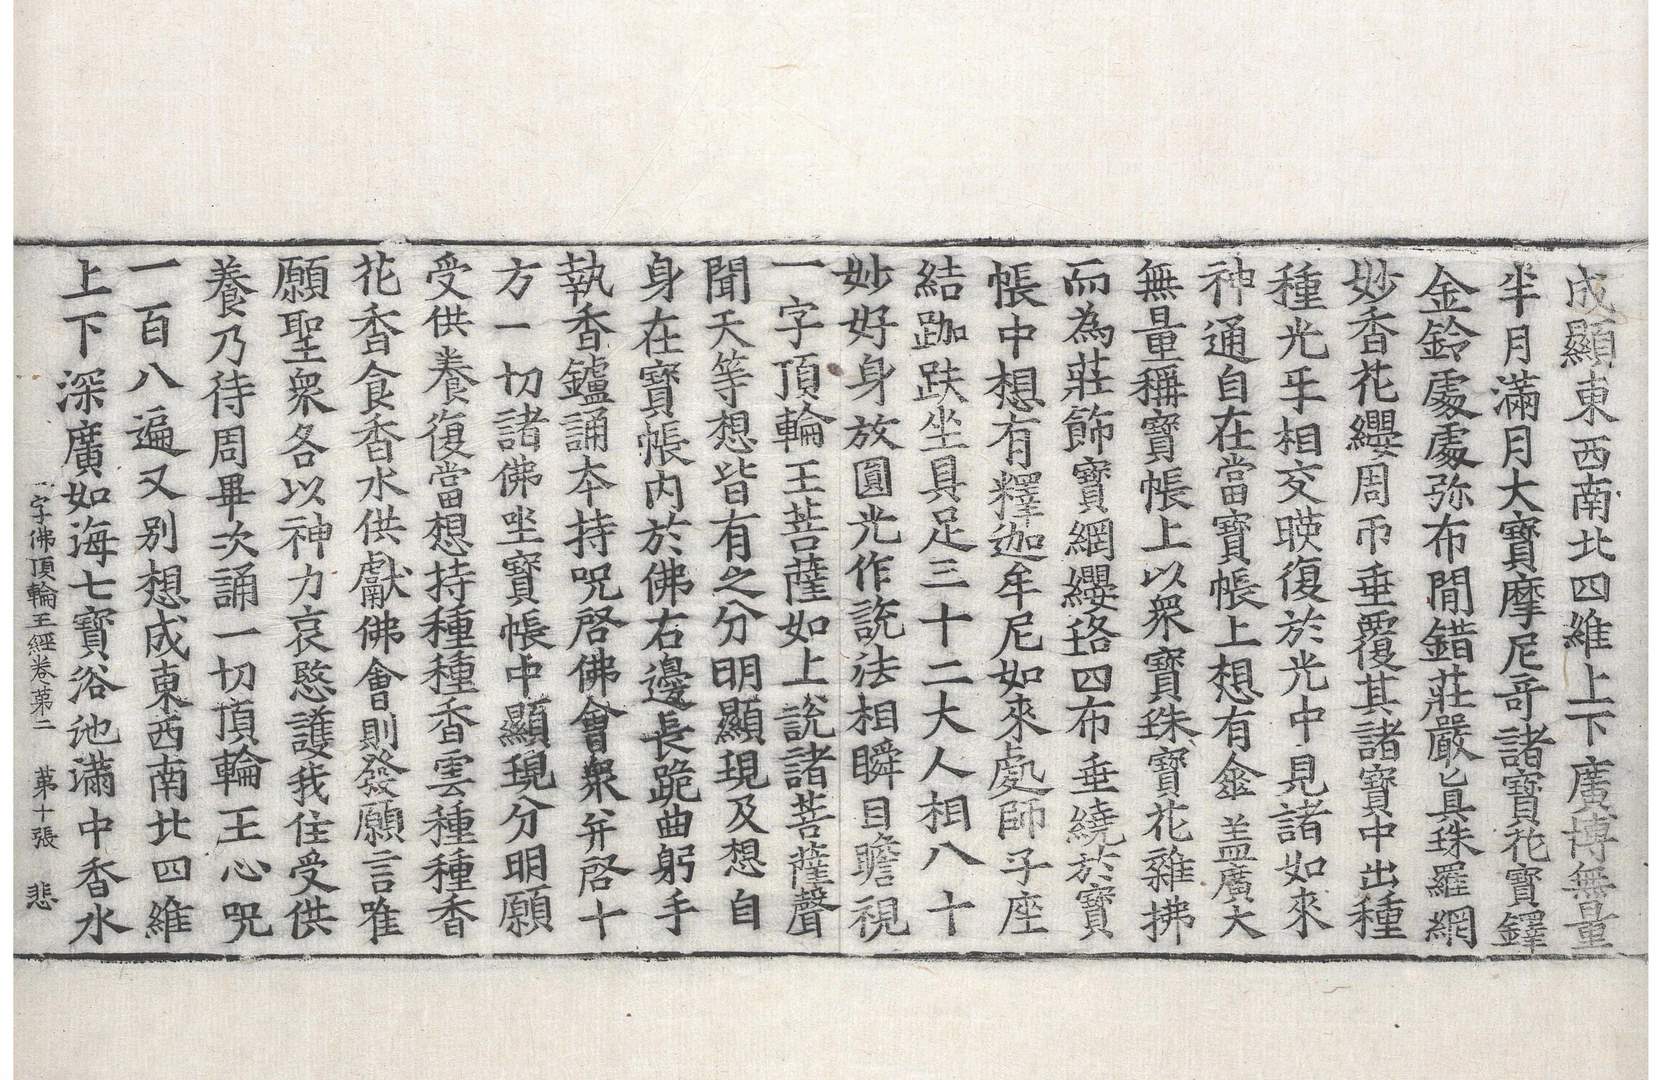 成顯東西南北四維上下廣博無量
半月滿月大寶摩尼哥諸寶花寶鐸
金鈴處處弥布間錯莊嚴以真珠羅網
妙香花纓周帀垂覆其諸寶中出種
種光𤓰相交暎復於光中見諸如來
神通自在當寶帳上想有傘盖廣大
無量稱寶帳上以衆寶珠寶花雜拂
而為莊飾寶網纓珞四布垂繞於寶
帳中想有釋迦牟尼如來處師子座
結跏趺坐具足三十二大人相八十
妙好身放圓光作說法相瞬目瞻視
一字頂輪王菩薩如上說諸菩薩聲
聞天等想皆有之分明顯現及想自
身在寶帳内於佛右邊長跪曲躬手
執香鑪誦本持呪啓佛會衆并啓十
方一切諸佛坐寶帳中顯現分明願
受供養復當想持種種香雲種種香
花香食香水供獻佛會則發願言唯
願聖衆各以神力哀愍護我住受供
養乃待周畢次誦一切頂輪王心呪
一百八遍又别想成東西南北四維
上下深廣如海七寶浴池滿中香水
一字佛頂輪王經卷第二 第十張 悲